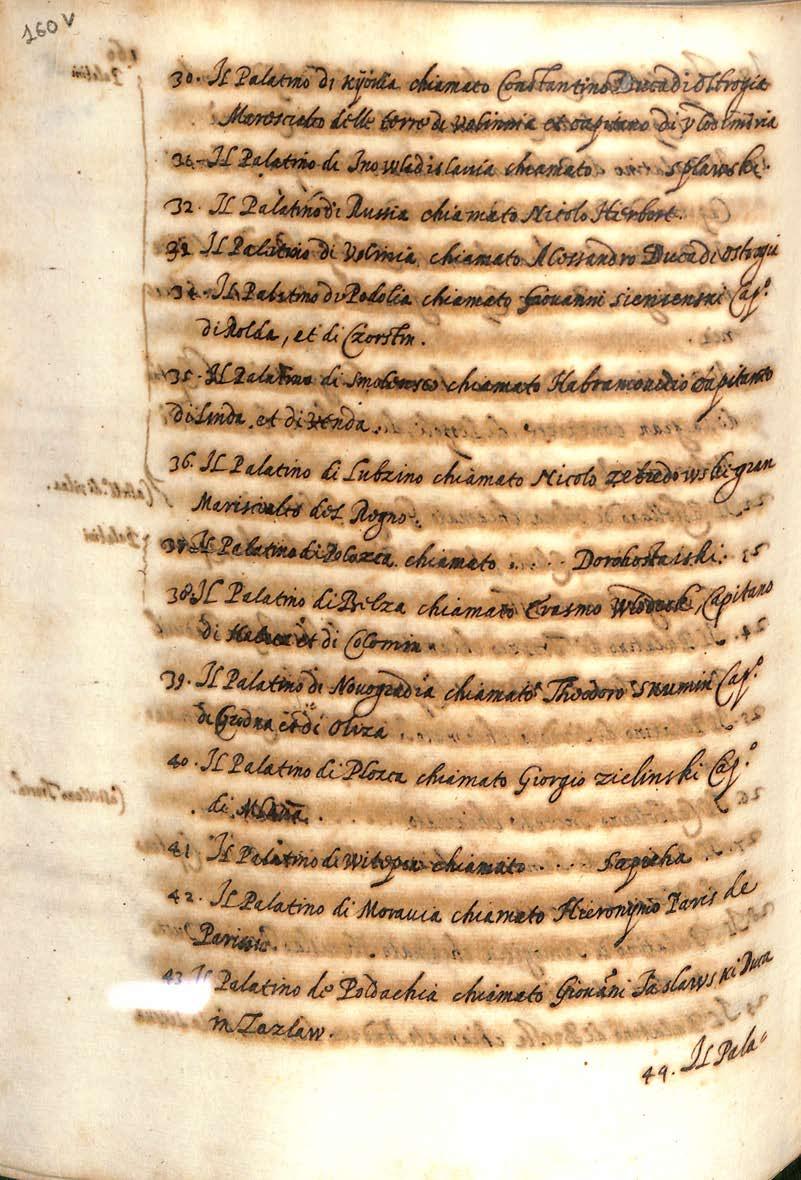 160 V
30. Il Palatino di Kyovia chiamato Constantino Duca di Ostrogia
Marescialco delle terre di Volinnia et capitano di Vlodimiria
31. Il Palatino di Inowladislavia chiamato . . Splawski.
32. Il Palatino di Russia chiamato Nicolo Herbort.
33. Il Palatino di Volinia chiamato Alessandro Duca di Ostrogia
34. Il Palatino di Podolia chiamato Giovanni Siensenski Cap.º
di Rolda, et di Czorstin.
35. Il Palatino di Smolensco chiamato Habramovicio Capitanio
di Linda et di Venda.
36. Il Palatino di Lublino chiamato Nicolo Zebredowski gran
Marisciallo del Regno.
37. Il Palatino di Polozca chiamato . . . . Dorohostaiski.
38. Il Palatino di Belza chiamato Erasmo Wlodeck, Capitano
di et di Colomin.
39. Il Palatino di Novogradia chiamato Theodoro Skumin Cap.º
di Grodna et di Olvza
40. Il Palatino di Plozca chiamato Giorgio Zielinski Cap.º
di
41. Il Palatino di Witepsca chiamato . . . Sapieha
42. Il Palatino di Moravia chiamato Hieronymo Paris de
Parisiis.
43. Il Palatino de Poldachia chiamato Giovãni Zaslawski Duca
in Zazlaw.
44. Il Pala=